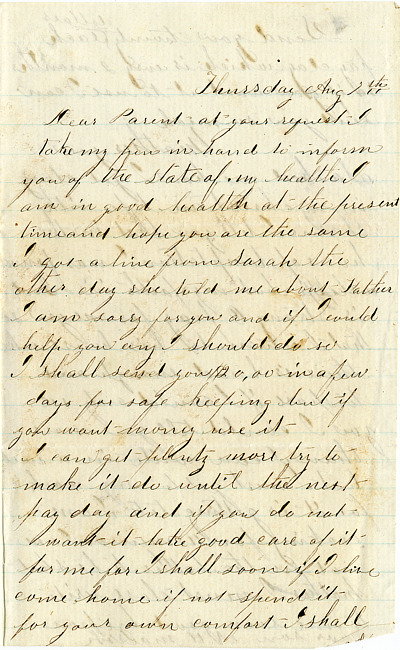 Thursday Aug 7th
Dear Parent at your request I
take my pen in hand to inform
you of the state of my health I
am in good health at the present
time and hope you are the same
I got a line from Sarah the
other day she told me about Father
I am sorry for you and if I could
help you any I should do so
I shall send you $20,00 in a few
days for safe keeping but if
you want money use it
I can get plenty more try to
make it do until the next
pay day and if you do not
want it take good care of it
for me for I shall soon if I live
come home if not spend it
for your own comfort I shall